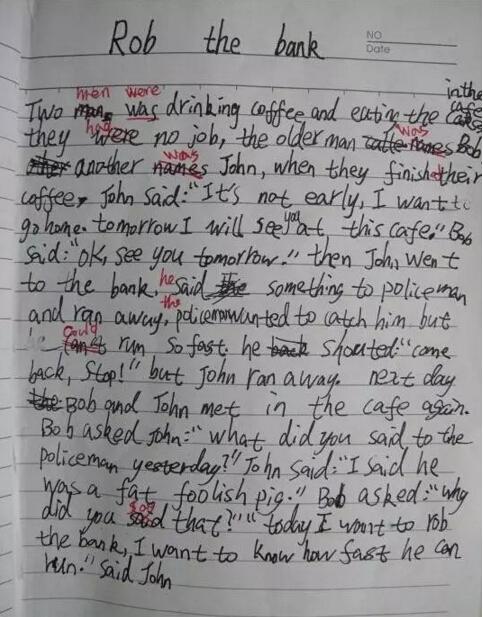 NO
Date
Rob the bank
in the
cafe
men were
Two man was drinking coffee and eating the cakes
had was
they were no job, the older man names Bob
was
another names John, when they finished their
coffee, John said:"It's not early, I want to
you
go home. tomorrow I will see at this cafe." Bob
said:"OK, see you tomorrow." then John went
he
to the bank, said something to policeman
the
and ran away, policeman wanted to catch him but
could
he can't run so fast. he back shouted:"come
back, stop!" but John ran away. next day
the Bob and John met in the cafe again.
Bob asked John:"what did you said to the
policeman yesterday?" John said:"I said he
was a fat foolish pig." Bob asked:"why
say
did you said that?" "today I want to rob
the bank, I want to know how fast he can
run." said John